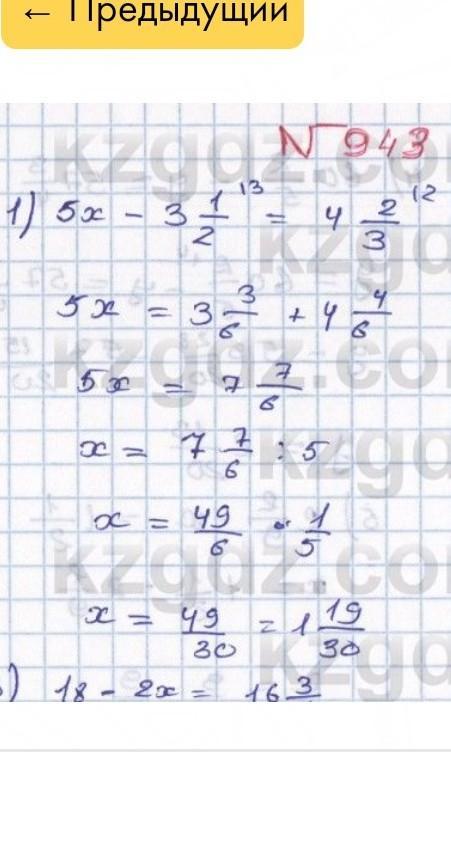 ← Предыдущий
№ 943
1) 5x - 3 1/2 |3 = 4 2/3 |2
5x = 3 3/6 + 4 4/6
5x = 7 7/6
x = 7 7/6 : 5
x = 49/6 · 1/5
x = 49/30 = 1 19/30
) 18 - 2x = 16 3/